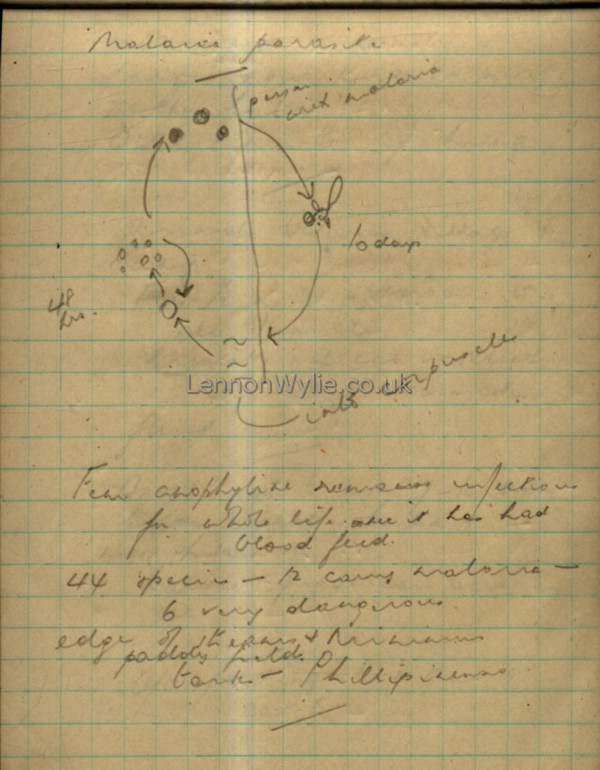 Malaria parasite
person
with malaria
10 days
48
hrs.
LennonWylie.co.uk
into corpuscles
Fem anophyline remains infectious
for whole life once it has had
blood feed.
44 species — 12 carry malaria —
6 very dangerous
edge of streams & Minimus
paddy field.
tanks — Phillipinensis